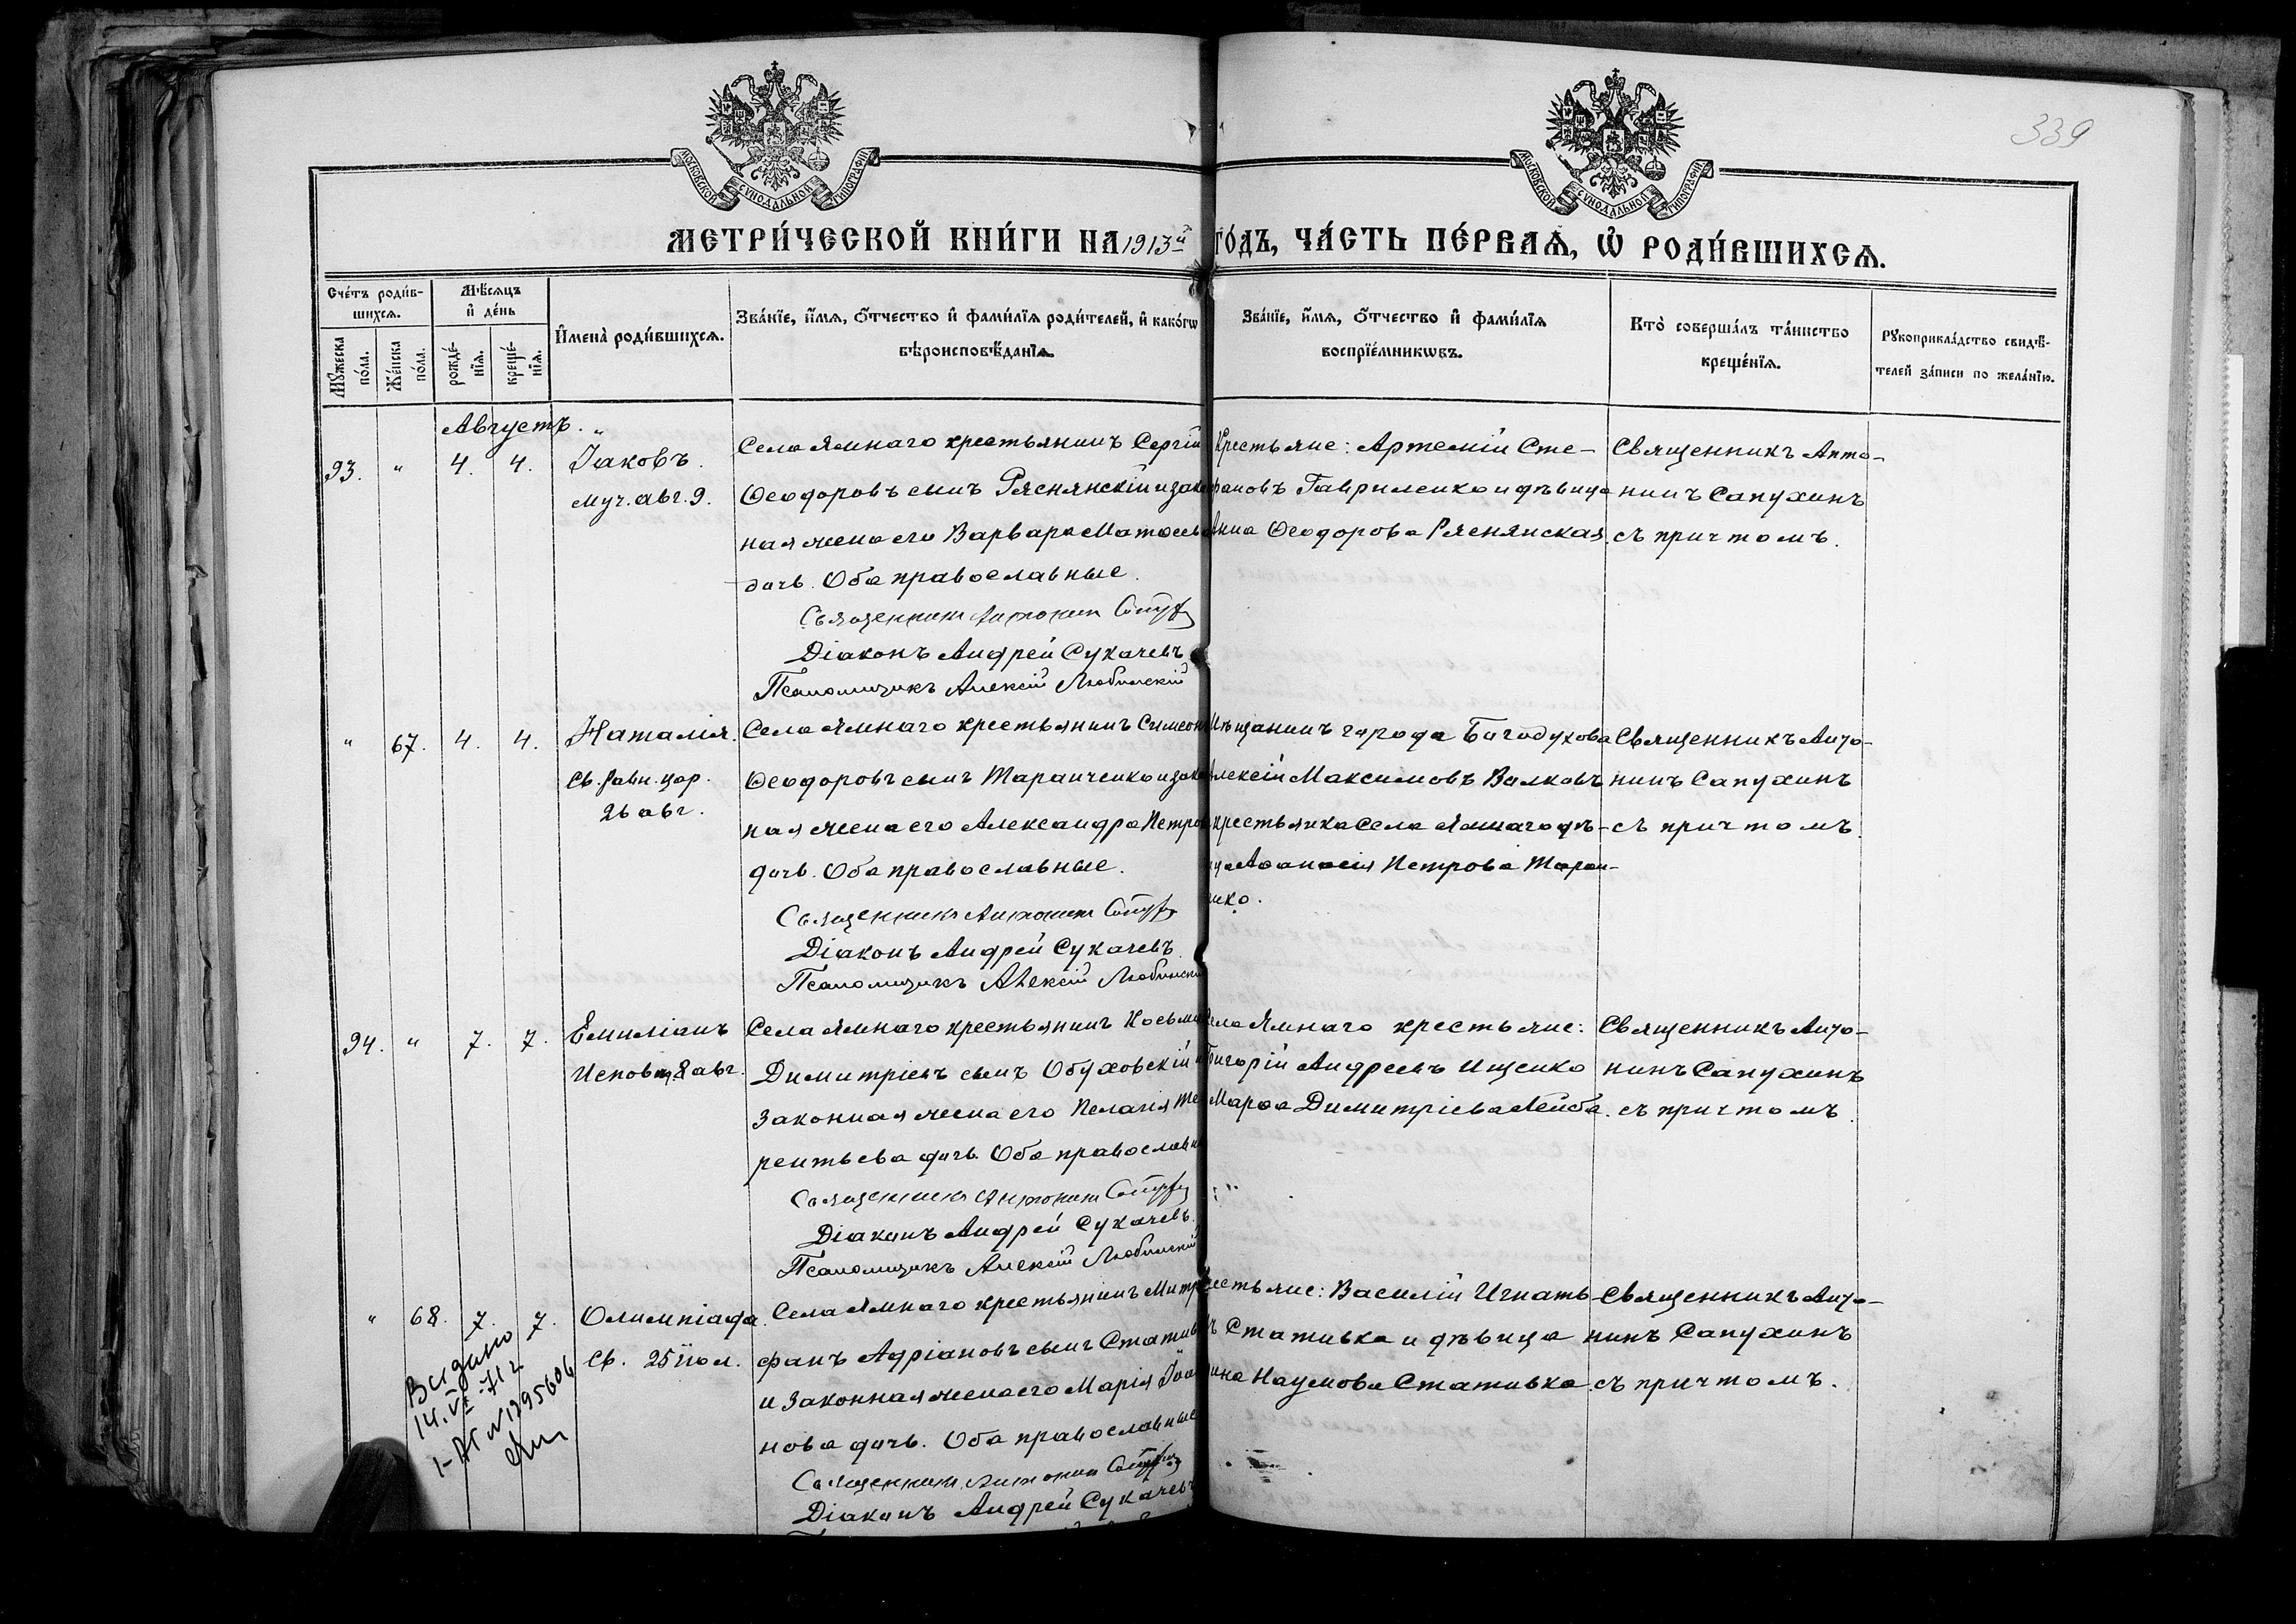 339
МОСКОВСКОЙ СѴНОДАЛЬНОЙ ТИПОГРАФІИ
МОСКОВСКОЙ СѴНОДАЛЬНОЙ ТИПОГРАФІИ
МЕТРИ́ЧЕСКОЙ КНИ́ГИ НА 1913й ГО́ДЪ, ЧА́СТЬ ПЕ́РВАѦ, Ѡ РОДИ́ВШИХСѦ.
Сче́тъ роди́в-
шихсѧ.
Мꙋ́жеска по́ла.
Же́нска по́ла.
Мѣ́сѧцъ
и҆ де́нь
рожде́-
нїѧ.
креще́-
нїѧ.
И҆мена̀ роди́вшихсѧ.
Зва́нїе, и҆́мѧ, о҆́тчество и҆ фами́лїѧ роди́телей, и҆ како́гѡ
вѣроисповѣ́данїѧ.
Зва́нїе, и҆́мѧ, о҆́тчество и҆ фами́лїѧ
воспрїе́мникѡвъ.
Кто̀ соверша́лъ та́инство
креще́нїѧ.
Рꙋкоприкла́дство свидѣ́-
телей за́писи по жела́нїю.
Августъ.
93. " 4. 4.
Іаковъ.
муч. авг. 9.
Села Ямнаго крестьянинъ Сергій
Ѳеодоровъ сынъ Ряснянскій и закон
ная жена его Варвара Матѳеева
дочь. Оба православные.
Священникъ Антонин
Діаконъ Андрей Сукачевъ
Псаломщикъ Алексій Любинскій
Крестьяне: Артемій Сте-
фановъ Гавриленко и дѣвица
Анна Ѳеодорова Ряснянская.
Священникъ Анто-
нинъ Сапухинъ
съ причтомъ.
" 67. 4. 4.
Наталія.
Св. равн. цар.
26 авг.
Села Ямнаго крестьянинъ Симеонъ
Ѳеодоровъ сынъ Таранченко и закон
ная жена его Александра Петрова
дочь. Оба православные.
Священникъ Антонинъ
Діаконъ Андрей Сукачевъ
Псаломщикъ Алексій Любинскій
Мѣщанинъ города Богодухова
Алексій Максимовъ Волковъ
крестьянка села Ямнаго дѣ-
вица Аѳанасія Петрова Таран-
нко.
Священникъ Анто-
нинъ Сапухинъ
съ причтомъ.
94. " 7. 7.
Емиліанъ
Исповѣд. 8 авг.
Села Ямнаго крестьянинъ Косьма
Димитріевъ сынъ Обуховскій и
законная жена его Пелагія Те
рентьева дочь. Оба православн
Священникъ Антонинъ
Діаконъ Андрей Сукачевъ.
Псаломщикъ Алексій Любинскій
Села Ямнаго крестьяне:
Григорій Андреевъ Ищенко
Марѳа Димитріева Лейба.
Священникъ Анто-
нинъ Сапухинъ
съ причтомъ.
" 68. 7. 7.
Олимпіада.
св. 25 іюл.
Села Ямнаго крестьянинъ Митро
фанъ Адріановъ сынъ Статив
и законная жена его Марія Іоан
нова дочь. Оба православные
Священникъ Антонин
Діаконъ Андрей Сукачевъ
Крестьяне: Василій Игнать-
въ Стативка и дѣвица
ина Наумова Стативка.
Священникъ Анто-
нинъ Сапухинъ
съ причтомъ.
Видано
14.VI-71г
1-ЛГ №1395606